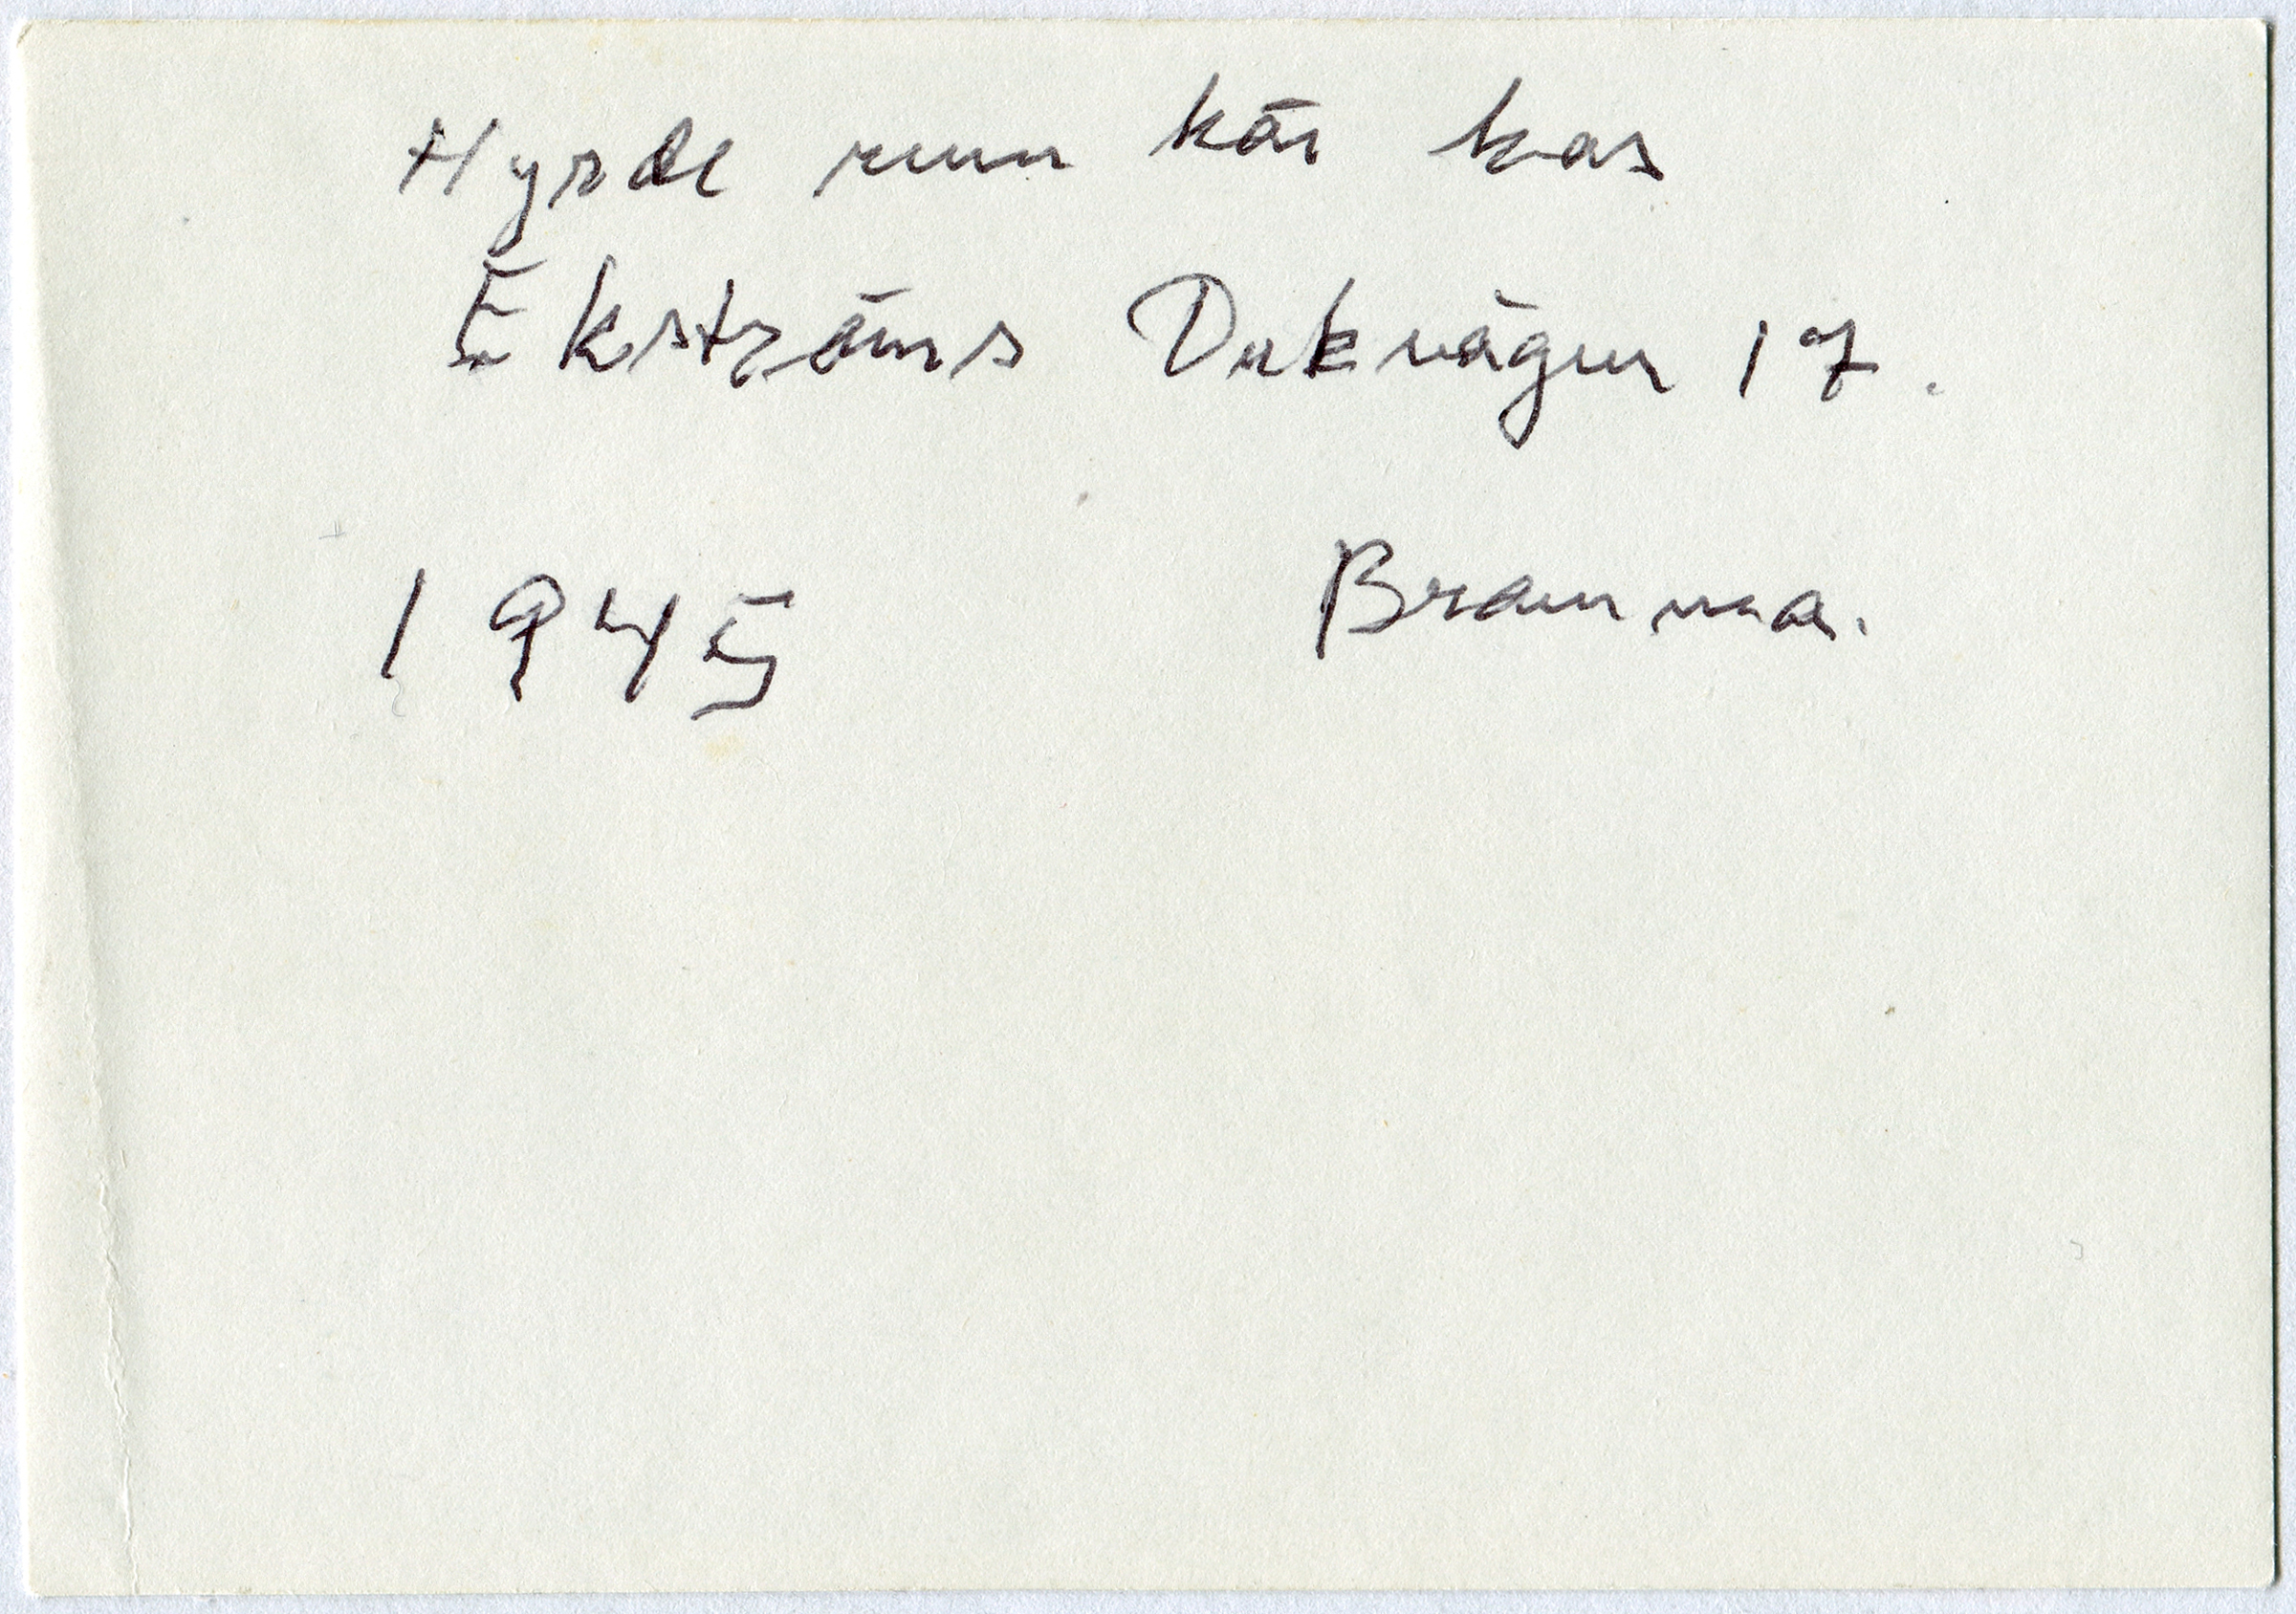 Hyrde rum här hos
Ekströms Duk vägen 17.
1945 Bromma.